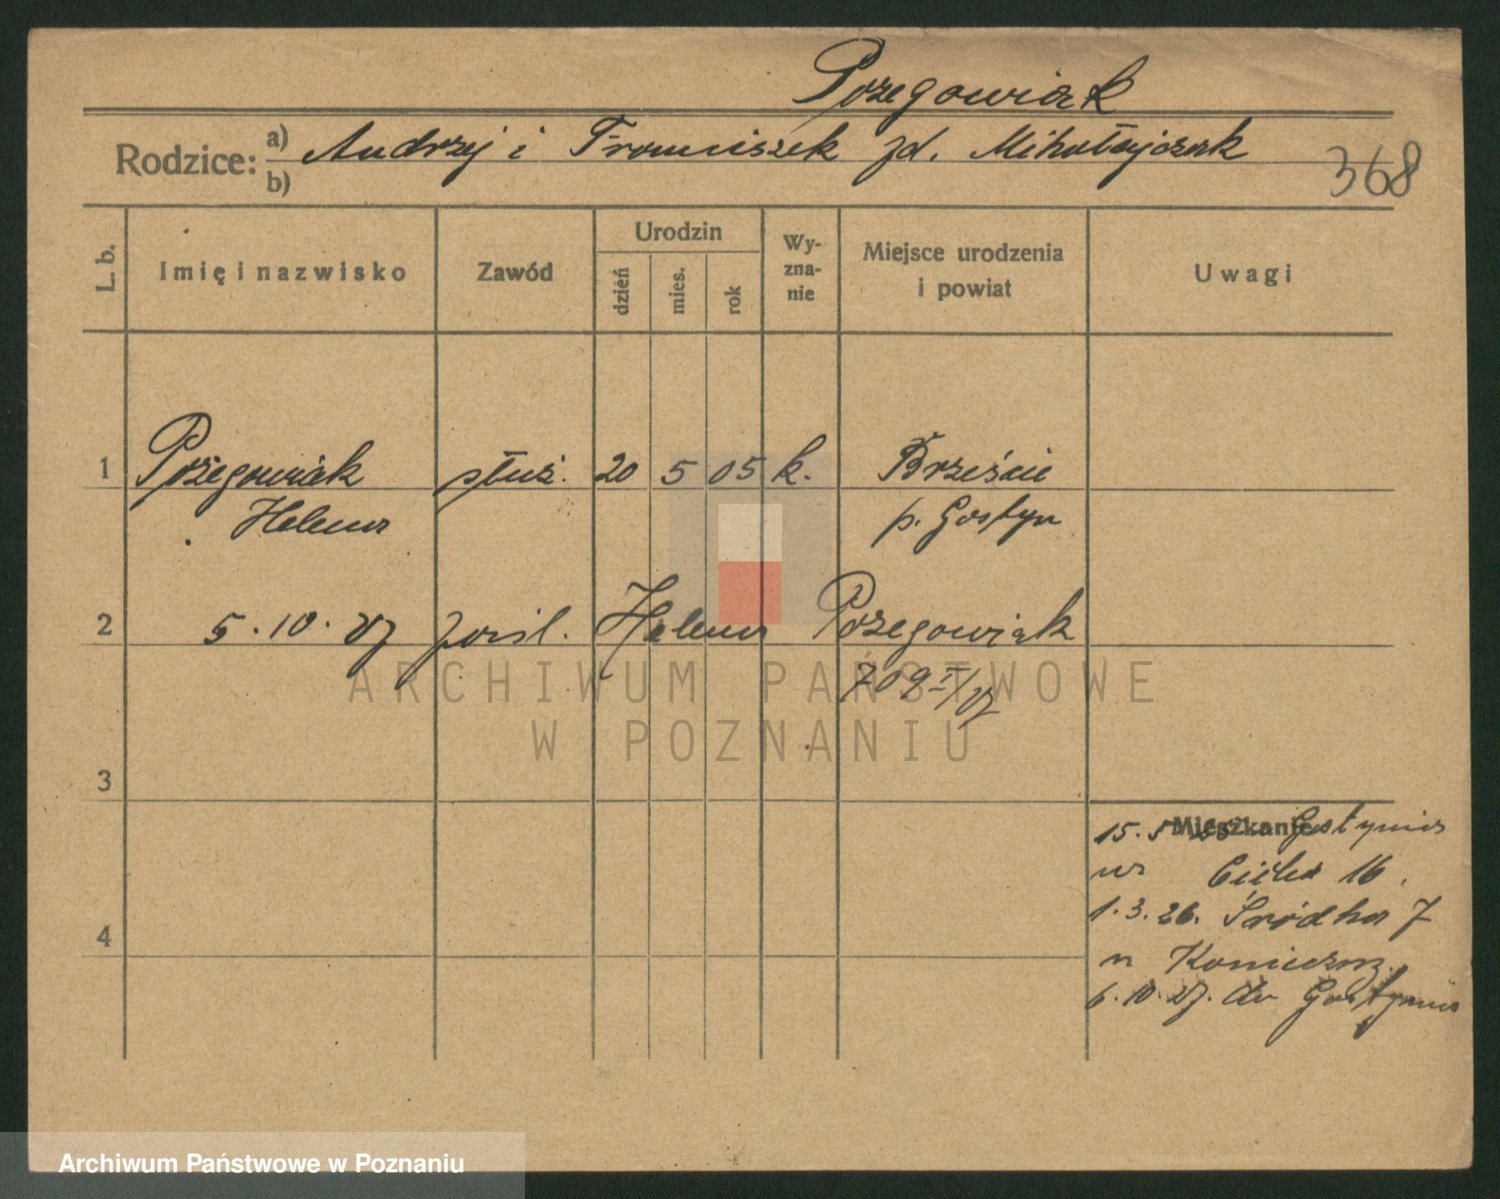 Pożegowiak
Rodzice: a) Andrzej i Franciszek zd. Mikołajczak
b)
368
L. b.
Imię i nazwisko
Zawód
Urodzin
dzień
mies.
rok
Wy-
zna-
nie
Miejsce urodzenia
i powiat
Uwagi
1 Pożegowiak służ. 20 5 05 k. Brzeście
Helena p. Gostyn
2 5.10.27 Helena Pożegowiak
709 II/27
3
Mieszkanie
15.5 Gostynia
16.
1.3.26. Śródka 7
4
6.10.27. do Gostynia
ARCHIWUM PAŃSTWOWE
W POZNANIU
Archiwum Państwowe w Poznaniu